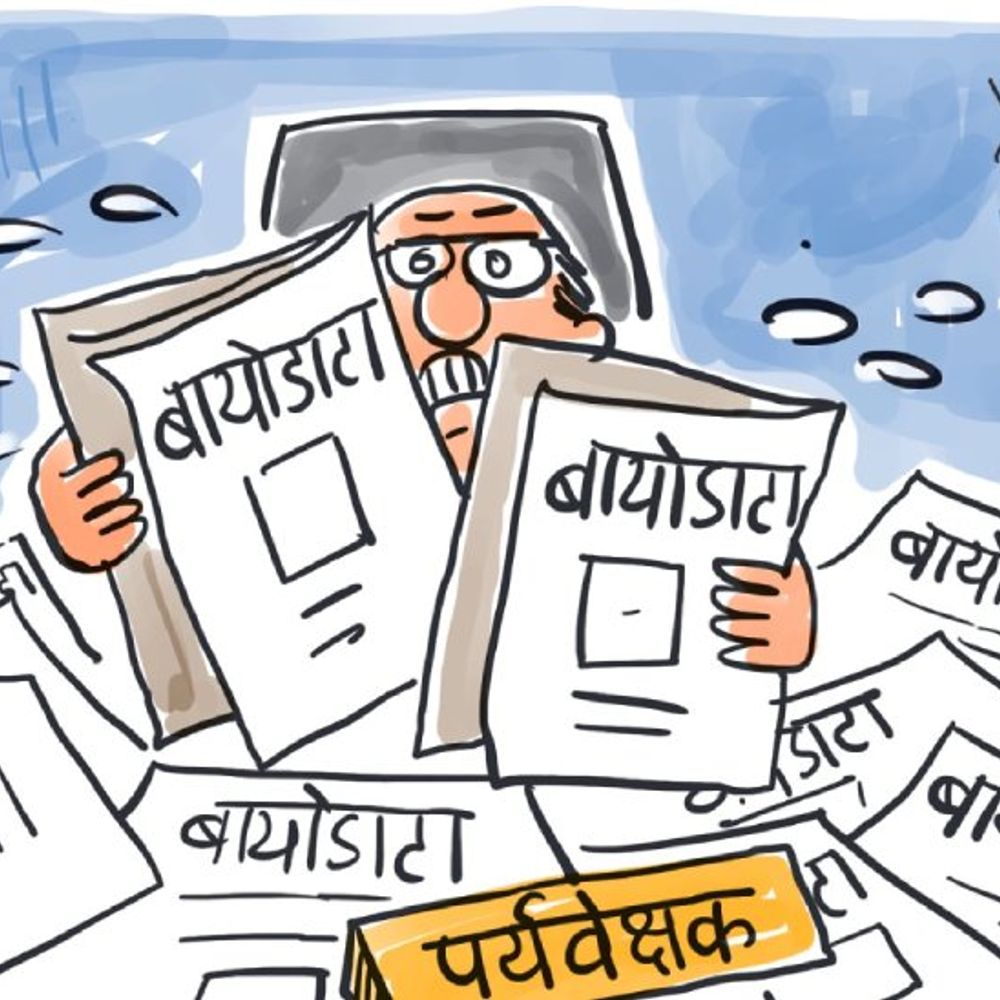 बायोडाटा
बायोडाटा
बायो
डाटा
बायोडाटा
बा
टा
पर्यवेक्षक